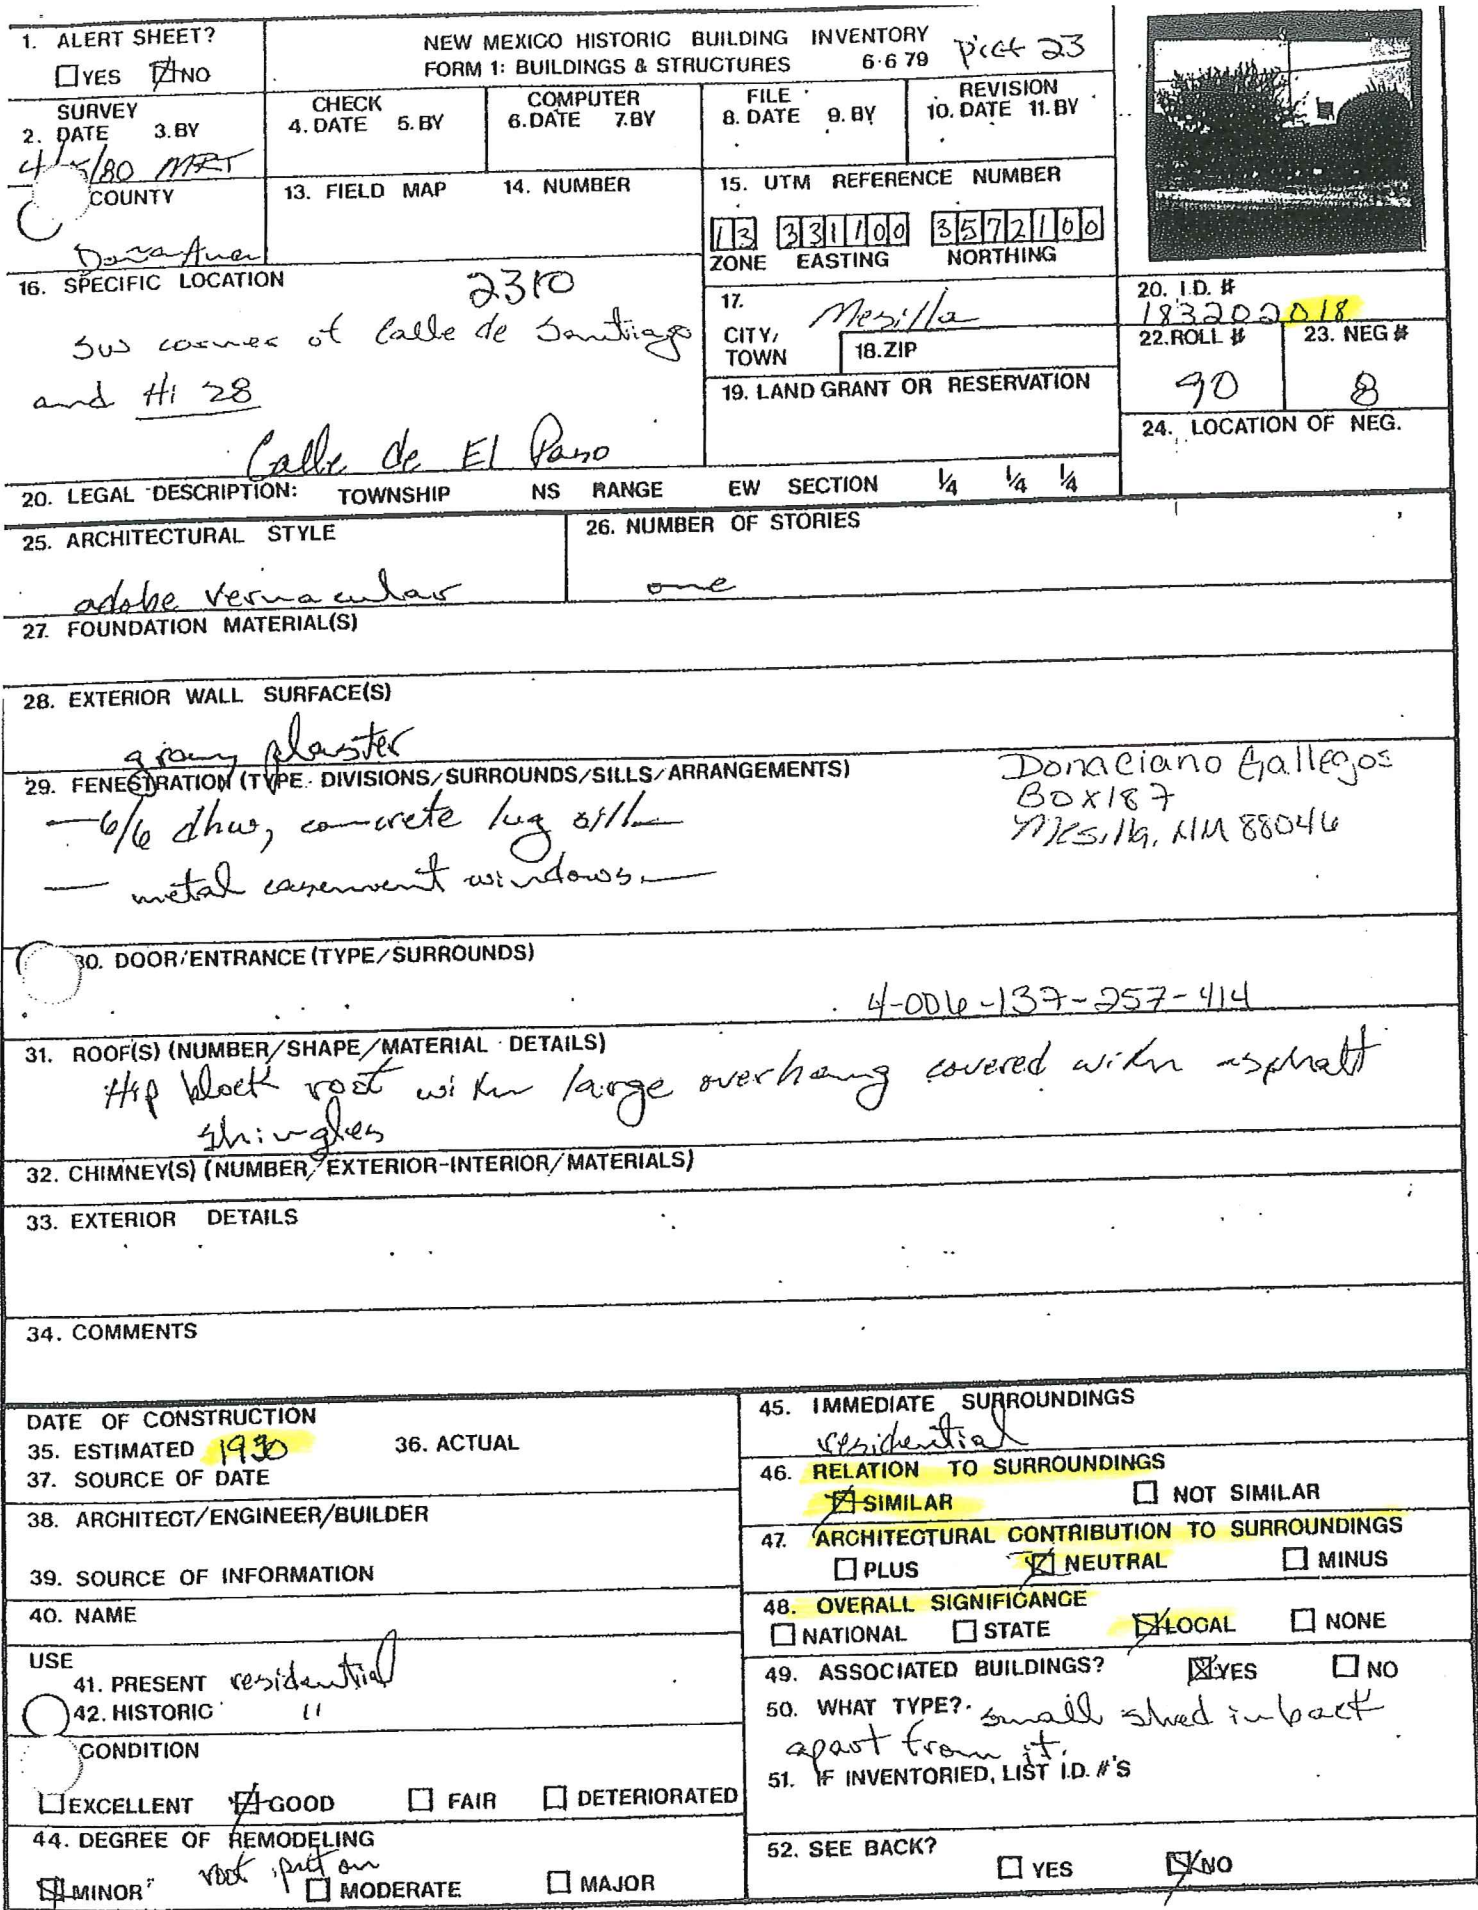 1. ALERT SHEET?
☐YES ☒NO
NEW MEXICO HISTORIC BUILDING INVENTORY
FORM 1: BUILDINGS & STRUCTURES 6·6 79
Pict 23
SURVEY
2. DATE 3. BY
4/ /80 MRT
CHECK
4. DATE 5. BY
COMPUTER
6. DATE 7. BY
FILE
8. DATE 9. BY
REVISION
10. DATE 11. BY
COUNTY
Doña Ana
13. FIELD MAP 14. NUMBER
15. UTM REFERENCE NUMBER
13 331100 3572100
ZONE EASTING NORTHING
16. SPECIFIC LOCATION
2310
SW corner of Calle de Santiago
and HI 28
Calle de El Paso
17.
CITY/
TOWN
Mesilla
18. ZIP
19. LAND GRANT OR RESERVATION
20. I.D. #
183202018
22. ROLL # 23. NEG #
90 8
24. LOCATION OF NEG.
20. LEGAL DESCRIPTION: TOWNSHIP NS RANGE EW SECTION ¼ ¼ ¼
25. ARCHITECTURAL STYLE
adobe vernacular
26. NUMBER OF STORIES
one
27. FOUNDATION MATERIAL(S)
28. EXTERIOR WALL SURFACE(S)
plaster
29. FENESTRATION (TYPE DIVISIONS/SURROUNDS/SILLS/ARRANGEMENTS)
— 6/6 dhw, concrete lug sill
— metal casement windows —
Donaciano Gallegos
BOX187
Mesilla, NM 88046
30. DOOR/ENTRANCE (TYPE/SURROUNDS)
4-006-137-257-414
31. ROOF(S) (NUMBER/SHAPE/MATERIAL DETAILS)
Hip block roof with large overhang covered with asphalt
shingles
32. CHIMNEY(S) (NUMBER/EXTERIOR-INTERIOR/MATERIALS)
33. EXTERIOR DETAILS
34. COMMENTS
DATE OF CONSTRUCTION
35. ESTIMATED 1930 36. ACTUAL
37. SOURCE OF DATE
38. ARCHITECT/ENGINEER/BUILDER
39. SOURCE OF INFORMATION
40. NAME
USE
41. PRESENT residential
42. HISTORIC "
CONDITION
☐EXCELLENT ☒GOOD ☐ FAIR ☐ DETERIORATED
44. DEGREE OF REMODELING
roof put on
☒MINOR ☐ MODERATE ☐ MAJOR
45. IMMEDIATE SURROUNDINGS
residential
46. RELATION TO SURROUNDINGS
☒SIMILAR ☐ NOT SIMILAR
47. ARCHITECTURAL CONTRIBUTION TO SURROUNDINGS
☐ PLUS ☒ NEUTRAL ☐ MINUS
48. OVERALL SIGNIFICANCE
☐ NATIONAL ☐ STATE ☒LOCAL ☐ NONE
49. ASSOCIATED BUILDINGS? ☒YES ☐ NO
50. WHAT TYPE? small shed in back
apart from it.
51. IF INVENTORIED, LIST I.D. #'S
52. SEE BACK?
☐ YES ☒NO